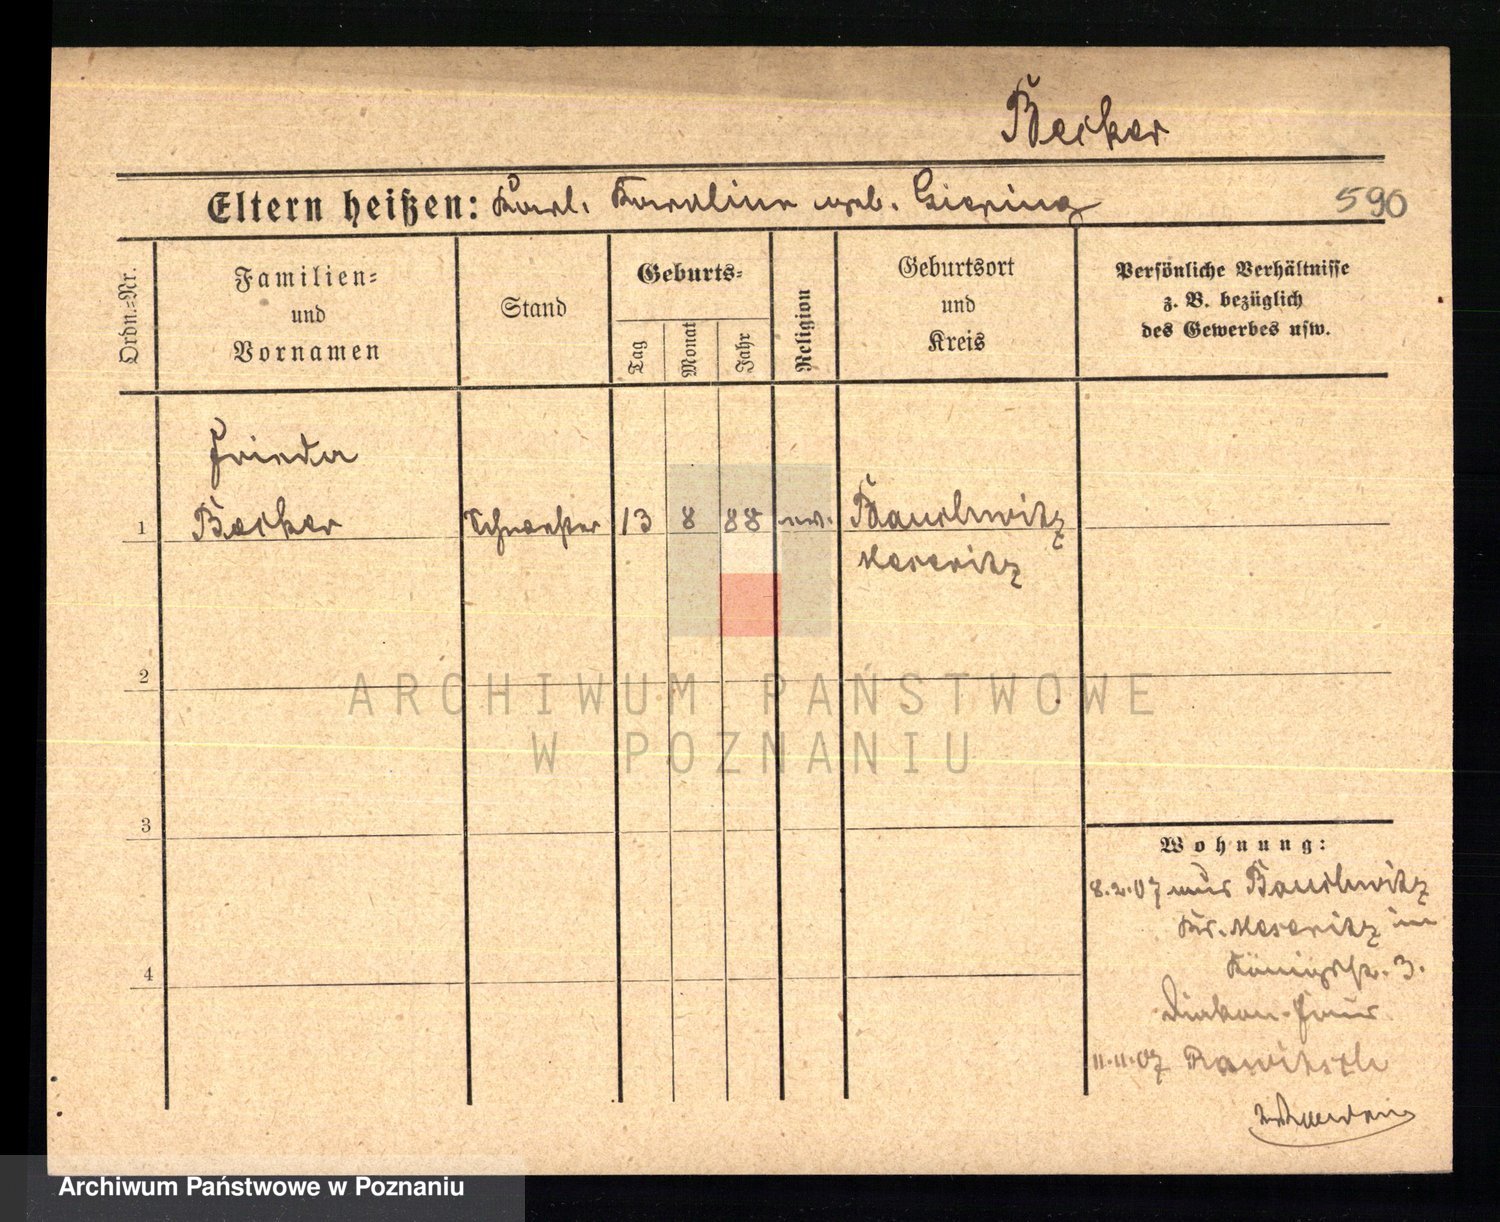 Becker
Eltern heißen: Karl. Karoline geb. Giering
590
Ordn.=Nr.
Familien=
und
Vornamen
Stand
Geburts=
Tag
Monat
Jahr
Religion
Geburtsort
und
Kreis
Persönliche Verhältnisse
z. B. bezüglich
des Gewerbes usw.
Frieda
1 Becker Schwester 13 8 88 ev. Bauchwitz
Meseritz
2
ARCHIWUM PAŃSTWOWE
W POZNANIU
3
Wohnung:
8.2.07 aus Bauchwitz
Kr. Meseritz in
Königstr. 3.
Diakon. Haus
4
11.11.07 Rawitsch
Archiwum Państwowe w Poznaniu